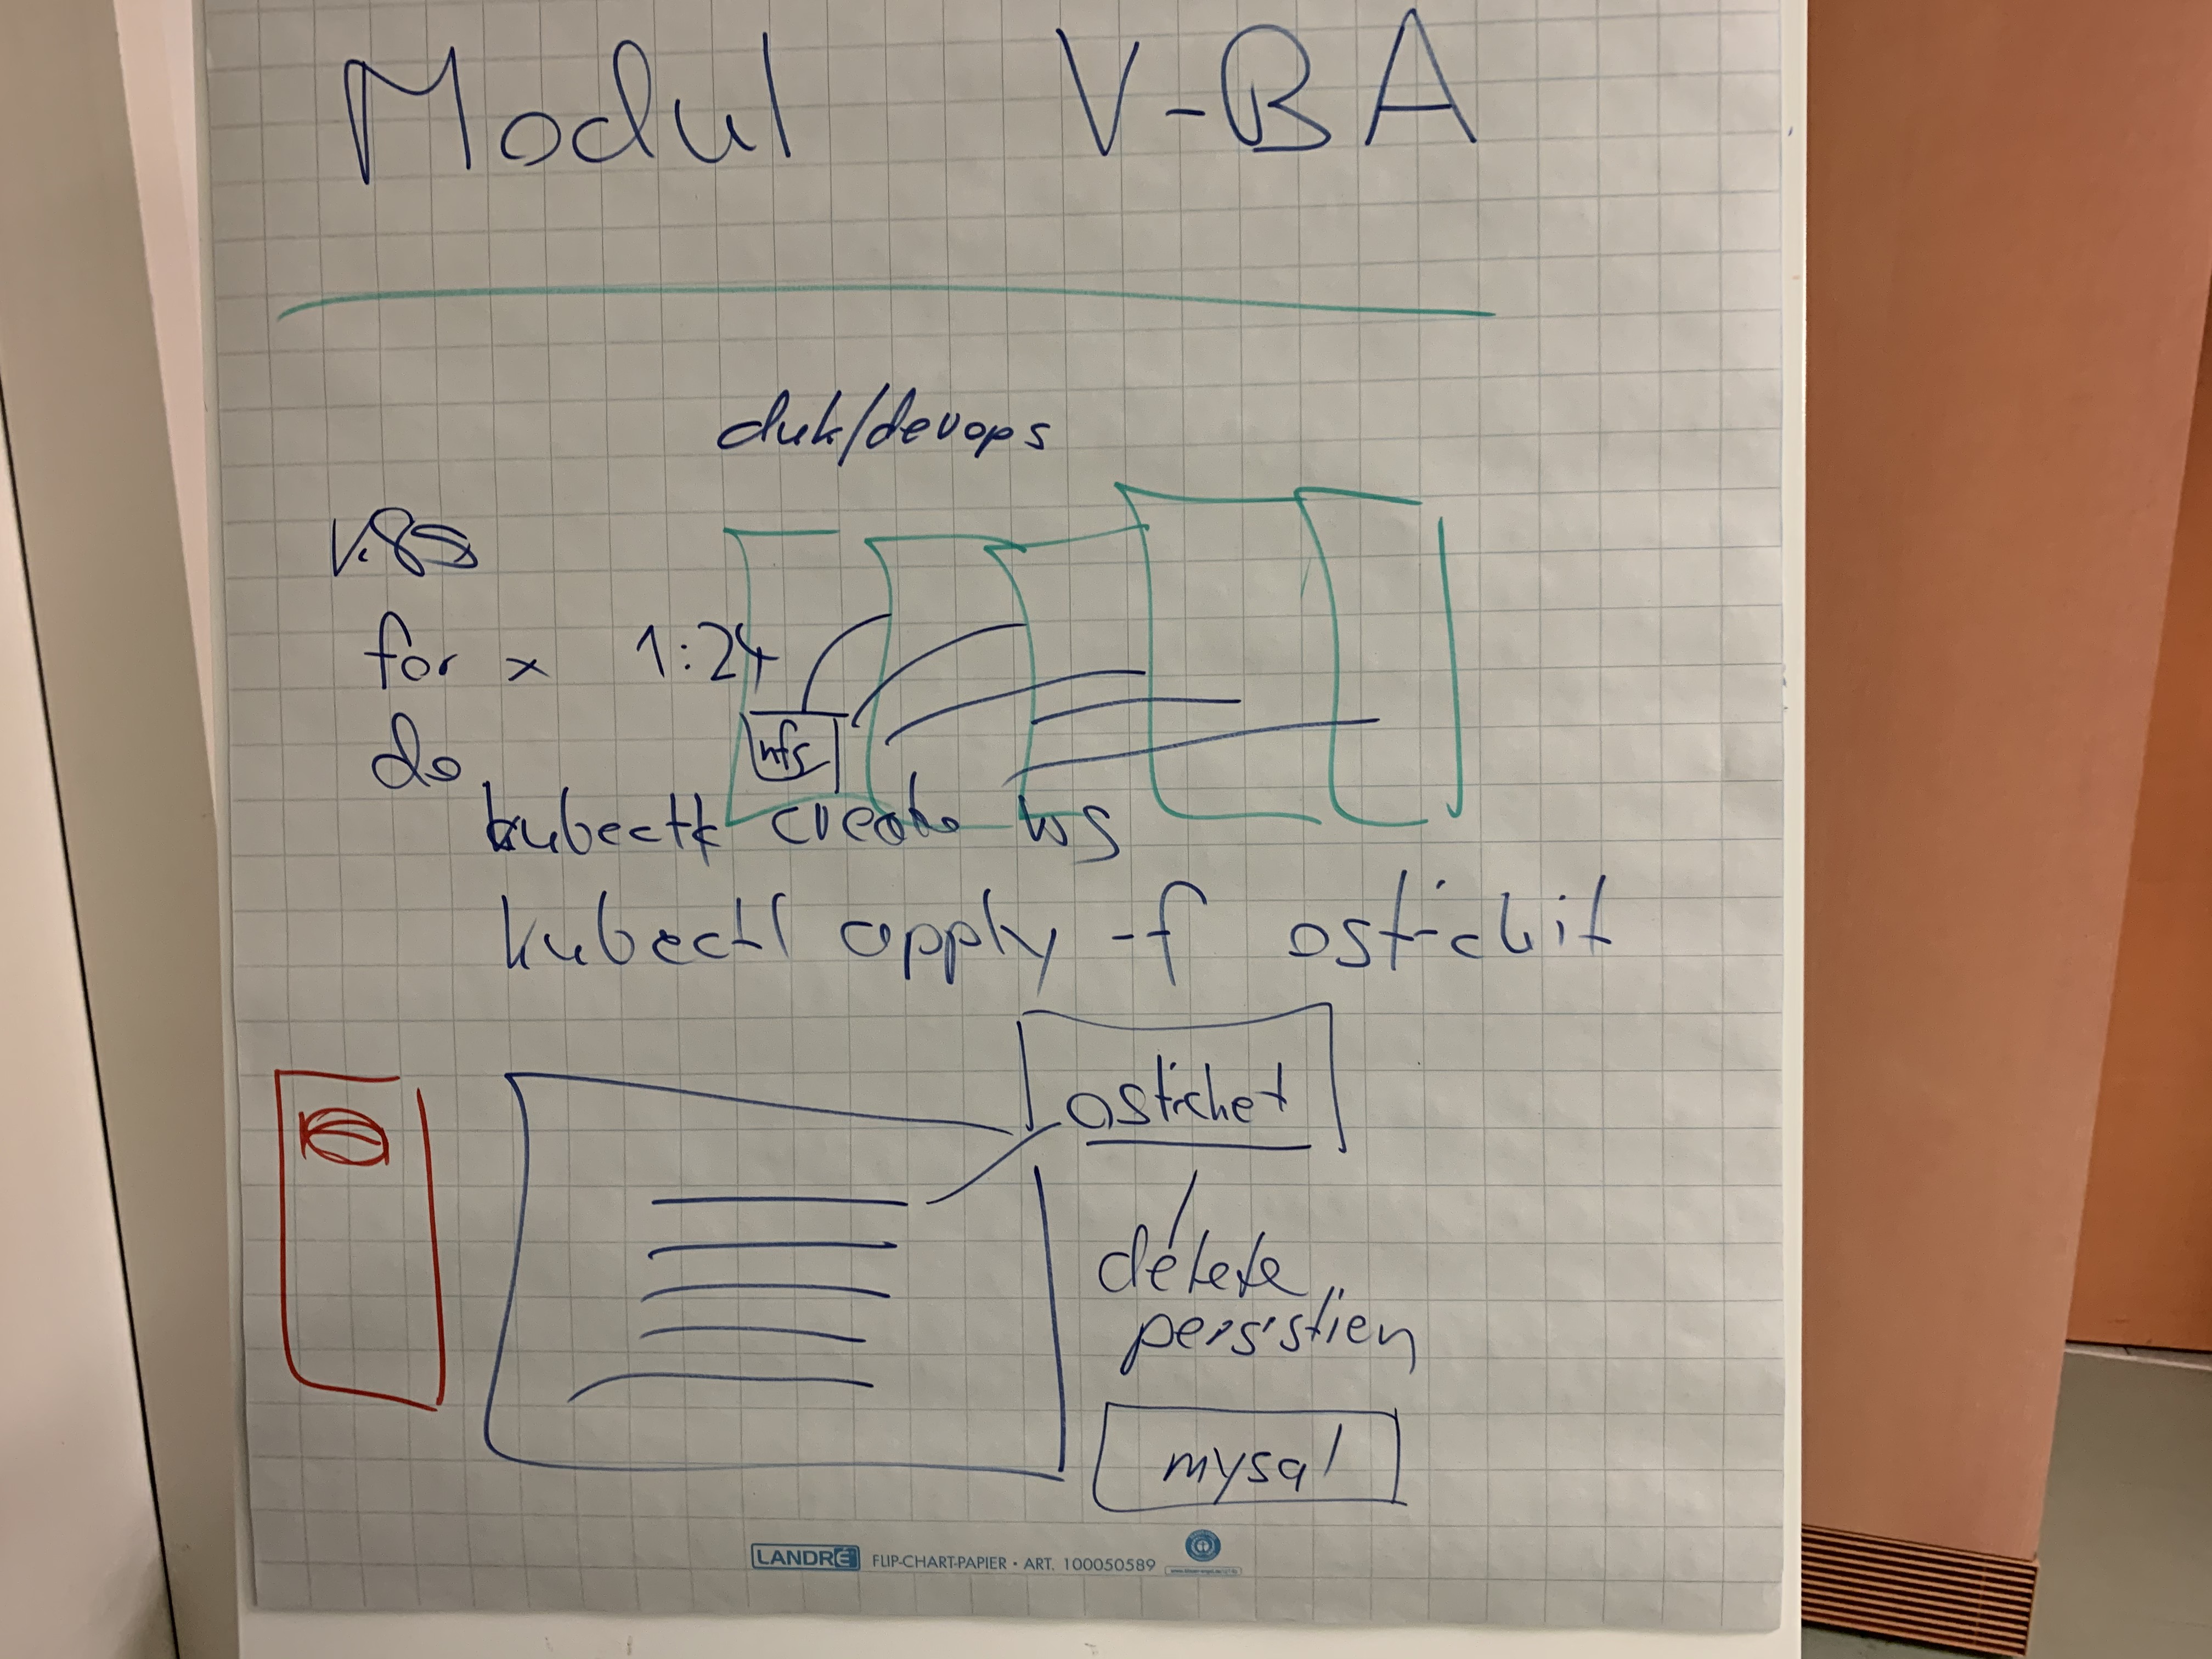 Modul V-BA
duk/devops
for x 1:24
do
nfs
kubectl create ns
kubectl apply -f
osticket
delete
persistien
mysql
LANDRÉ FLIP-CHART-PAPIER • ART. 100050589